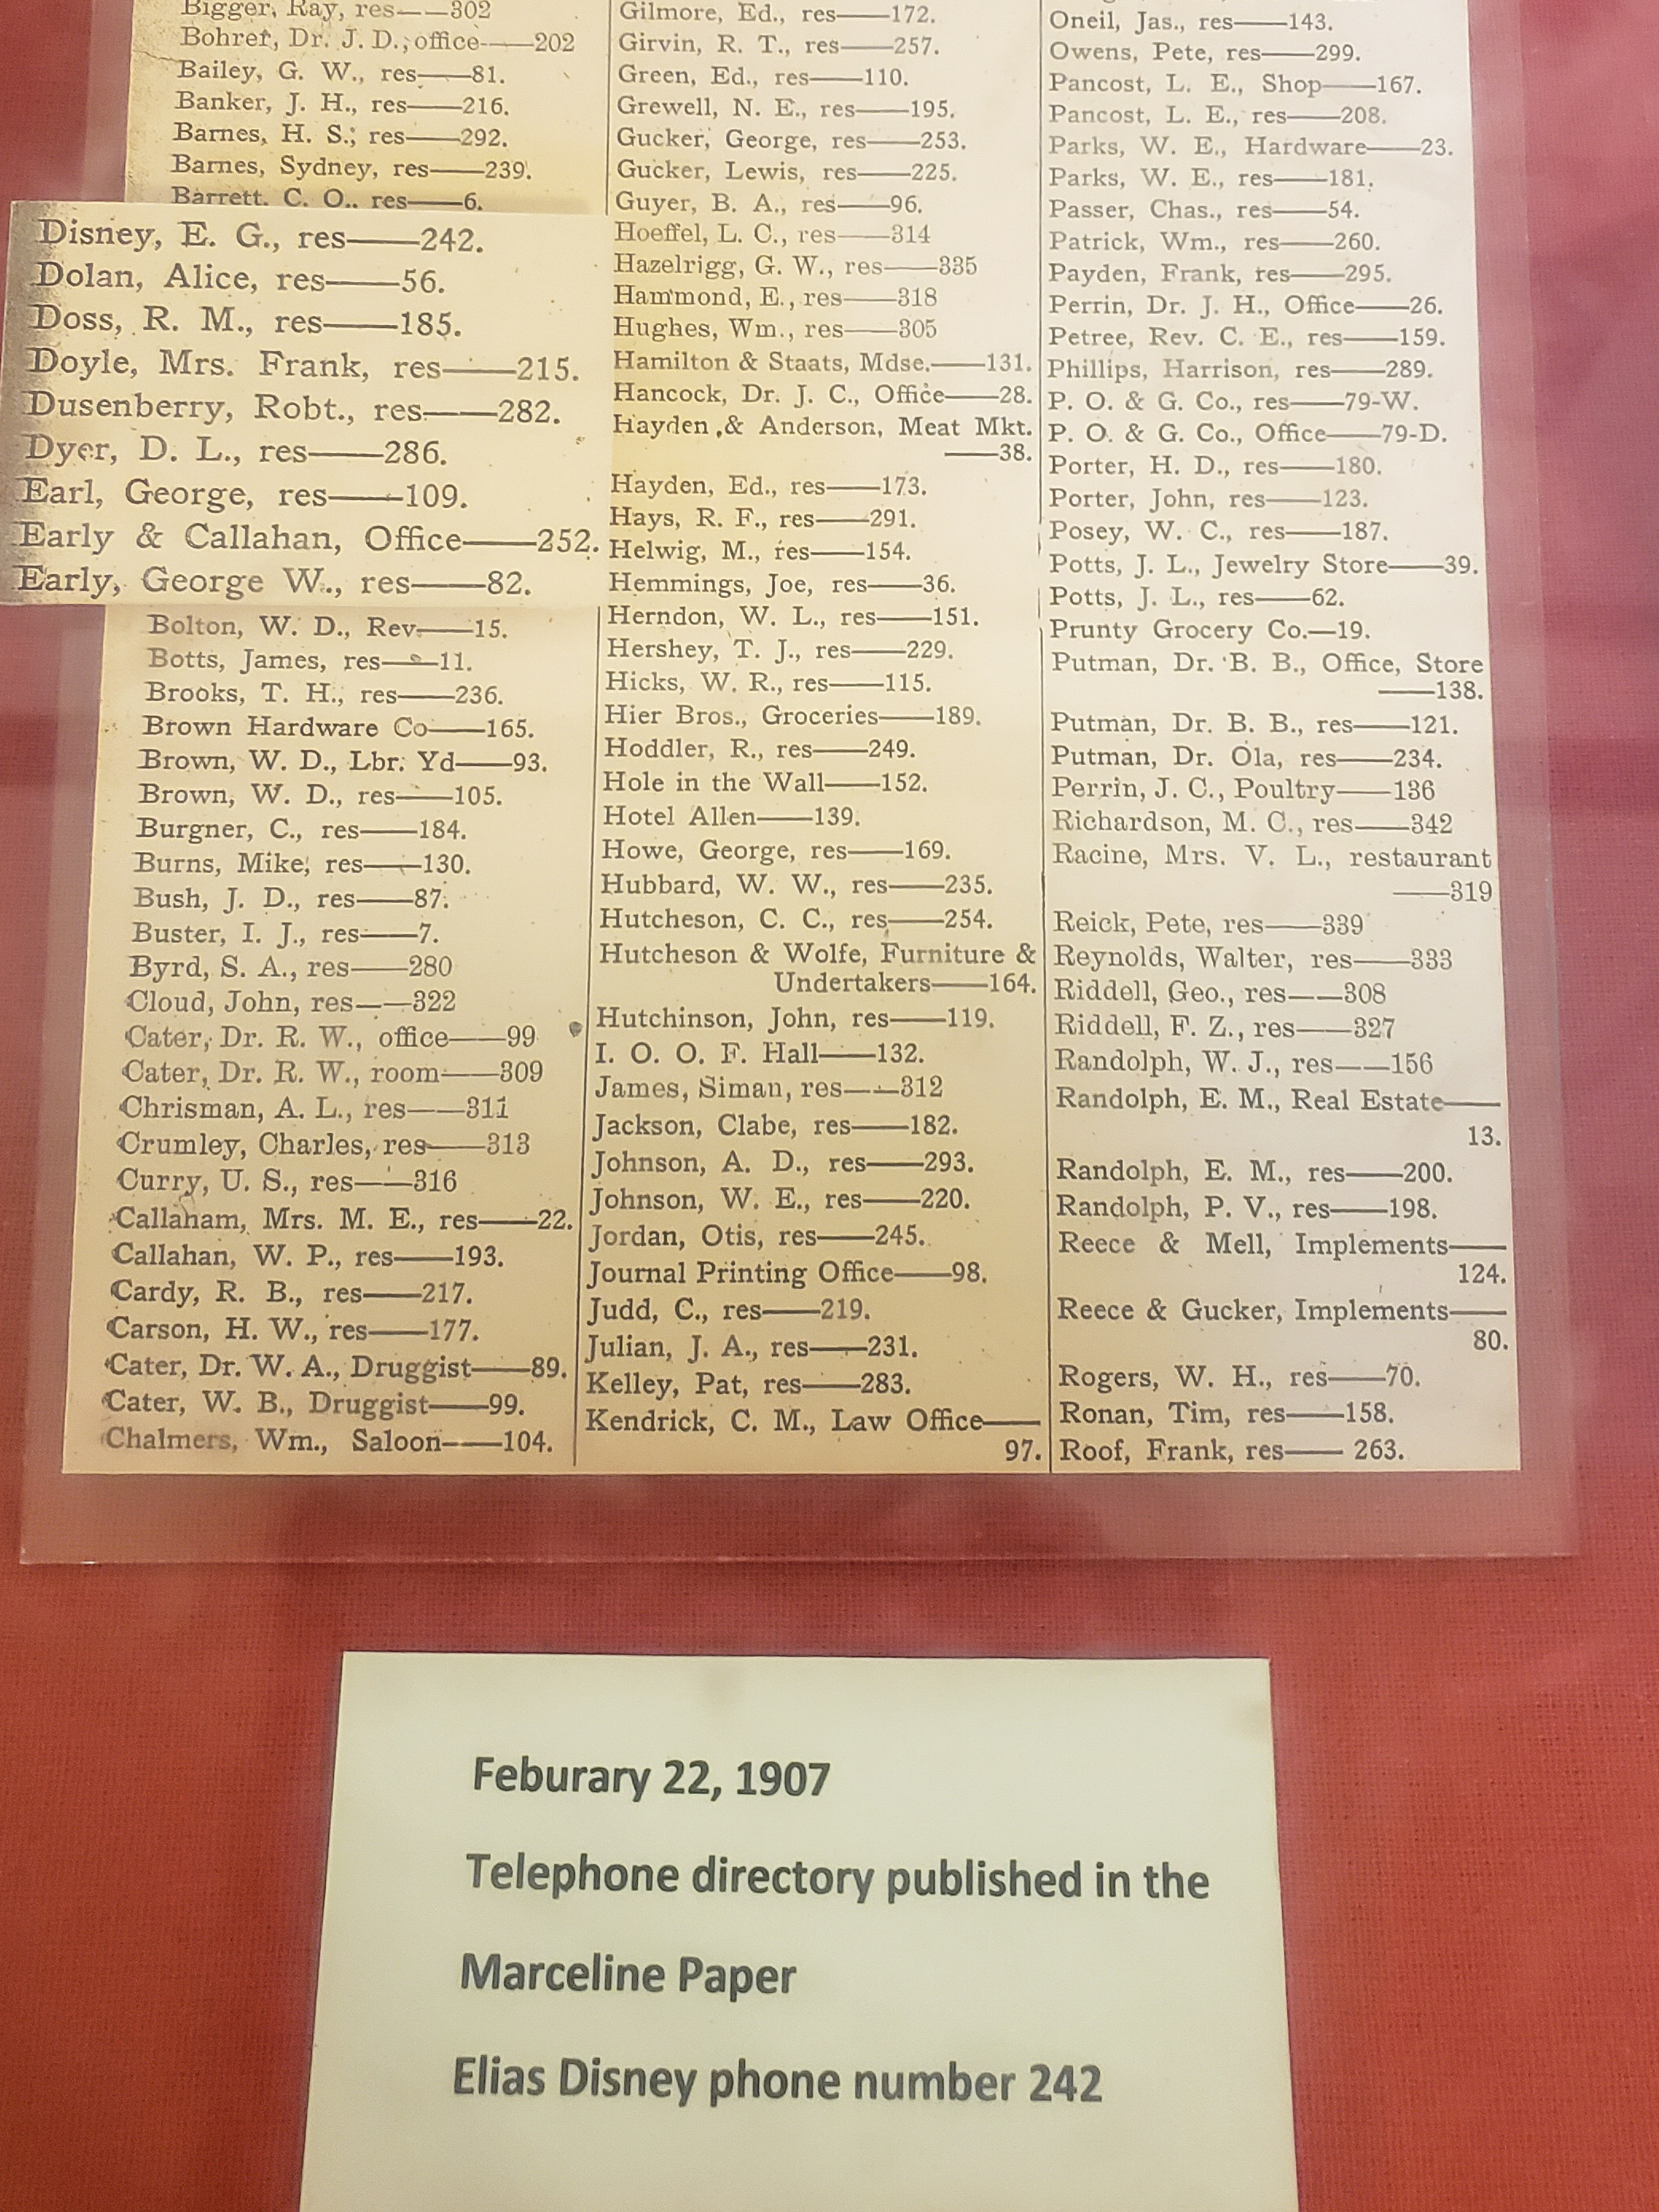 Bigger, Ray, res——302
Bohret, Dr. J. D., office——202
Bailey, G. W., res——81.
Banker, J. H., res——216.
Barnes, H. S., res——292.
Barnes, Sydney, res——239.
Barrett, C. O., res——6.
Disney, E. G., res——242.
Dolan, Alice, res——56.
Doss, R. M., res——185.
Doyle, Mrs. Frank, res——215.
Dusenberry, Robt., res——282.
Dyer, D. L., res——286.
Earl, George, res——109.
Early & Callahan, Office——252.
Early, George W., res——82.
Bolton, W. D., Rev——15.
Botts, James, res——11.
Brooks, T. H., res——236.
Brown Hardware Co——165.
Brown, W. D., Lbr. Yd——93.
Brown, W. D., res——105.
Burgner, C., res——184.
Burns, Mike, res——130.
Bush, J. D., res——87.
Buster, I. J., res——7.
Byrd, S. A., res——280
Cloud, John, res——322
Cater, Dr. R. W., office——99
Cater, Dr. R. W., room——309
Chrisman, A. L., res——311
Crumley, Charles, res——313
Curry, U. S., res——316
Callaham, Mrs. M. E., res——22.
Callahan, W. P., res——193.
Cardy, R. B., res——217.
Carson, H. W., res——177.
Cater, Dr. W. A., Druggist——89.
Cater, W. B., Druggist——99.
Chalmers, Wm., Saloon——104.
Gilmore, Ed., res——172.
Girvin, R. T., res——257.
Green, Ed., res——110.
Grewell, N. E., res——195.
Gucker, George, res——253.
Gucker, Lewis, res——225.
Guyer, B. A., res——96.
Hoeffel, L. C., res——314
Hazelrigg, G. W., res——335
Hammond, E., res——318
Hughes, Wm., res——305
Hamilton & Staats, Mdse.——131.
Hancock, Dr. J. C., Office——28.
Hayden & Anderson, Meat Mkt.
——38.
Hayden, Ed., res——173.
Hays, R. F., res——291.
Helwig, M., res——154.
Hemmings, Joe, res——36.
Herndon, W. L., res——151.
Hershey, T. J., res——229.
Hicks, W. R., res——115.
Hier Bros., Groceries——189.
Hoddler, R., res——249.
Hole in the Wall——152.
Hotel Allen——139.
Howe, George, res——169.
Hubbard, W. W., res——235.
Hutcheson, C. C., res——254.
Hutcheson & Wolfe, Furniture &
Undertakers——164.
Hutchinson, John, res——119.
I. O. O. F. Hall——132.
James, Siman, res——312
Jackson, Clabe, res——182.
Johnson, A. D., res——293.
Johnson, W. E., res——220.
Jordan, Otis, res——245.
Journal Printing Office——98.
Judd, C., res——219.
Julian, J. A., res——231.
Kelley, Pat, res——283.
Kendrick, C. M., Law Office——
97.
Oneil, Jas., res——143.
Owens, Pete, res——299.
Pancost, L. E., Shop——167.
Pancost, L. E., res——208.
Parks, W. E., Hardware——23.
Parks, W. E., res——181.
Passer, Chas., res——54.
Patrick, Wm., res——260.
Payden, Frank, res——295.
Perrin, Dr. J. H., Office——26.
Petree, Rev. C. E., res——159.
Phillips, Harrison, res——289.
P. O. & G. Co., res——79-W.
P. O. & G. Co., Office——79-D.
Porter, H. D., res——180.
Porter, John, res——123.
Posey, W. C., res——187.
Potts, J. L., Jewelry Store——39.
Potts, J. L., res——62.
Prunty Grocery Co.—19.
Putman, Dr. B. B., Office, Store
——138.
Putman, Dr. B. B., res——121.
Putman, Dr. Ola, res——234.
Perrin, J. C., Poultry——136
Richardson, M. C., res——342
Racine, Mrs. V. L., restaurant
——319
Reick, Pete, res——339
Reynolds, Walter, res——333
Riddell, Geo., res——308
Riddell, F. Z., res——327
Randolph, W. J., res——156
Randolph, E. M., Real Estate——
13.
Randolph, E. M., res——200.
Randolph, P. V., res——198.
Reece & Mell, Implements——
124.
Reece & Gucker, Implements——
80.
Rogers, W. H., res——70.
Ronan, Tim, res——158.
Roof, Frank, res—— 263.
Feburary 22, 1907
Telephone directory published in the
Marceline Paper
Elias Disney phone number 242